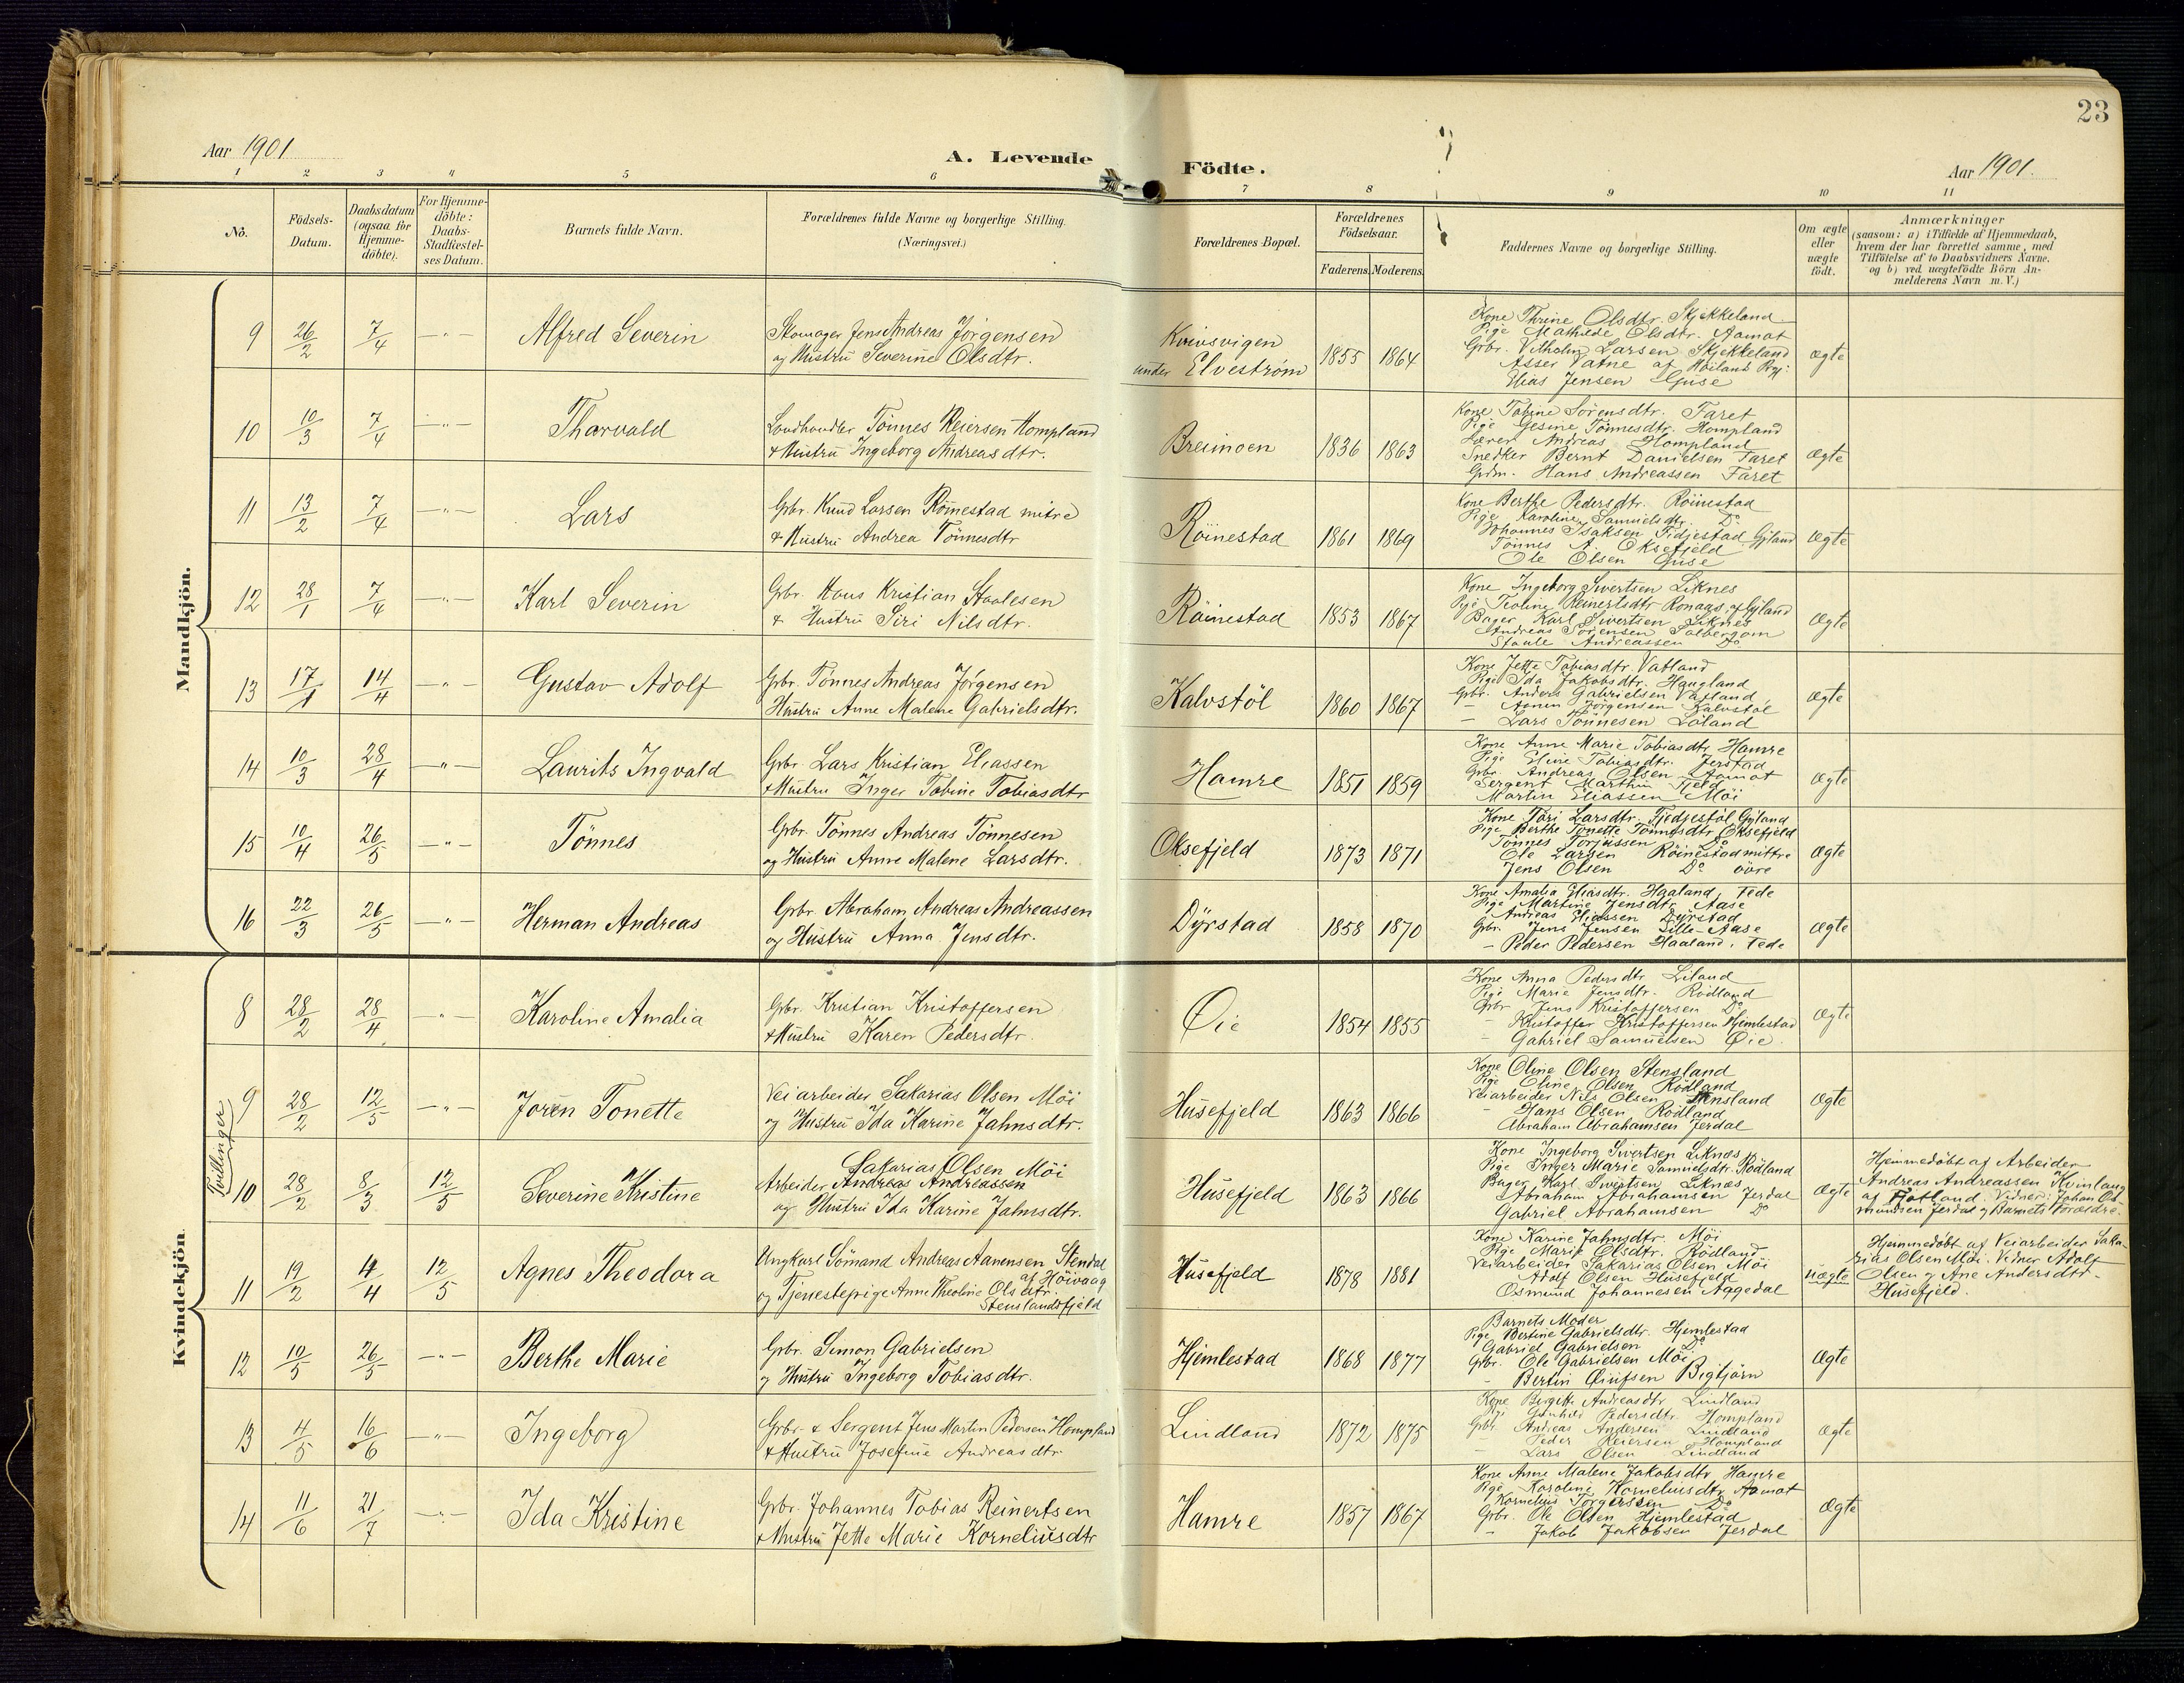 23
Aar 1901
A. Levende Födte.
Aar 1901.
1 2 3 4 5 6 7 8 9 10 11
Nô.
Födsels-Datum.
Daabsdatum (ogsaa for Hjemme-döbte).
For Hjemme-döbte: Daabs-Stadfæstel-ses Datum.
Barnets fulde Navn.
Forældrenes fulde Navne og borgerlige Stilling. (Næringsvei.)
Forældrenes Bopæl.
Forældrenes Födselsaar.
Faderens. Moderens.
Faddernes Navne og borgerlige Stilling.
Om ægte eller uægte födt.
Anmærkninger
(saasom: a) i Tilfælde af Hjemmedaab, hvem der har forrettet samme, med Tilföielse af to Daabsvidners Navne. og b) ved uægtefödte Börn Anmelderens Navn m. V.)
Mandkjön.
9 26/2 7/4 — " — Alfred Severin
Skomager Jens Andreas Jörgensen
og Hustru Severine Olsdtr.
Kvivsvigen
under Elveström
1855 1864
Kone Thrine Olsdtr. Skjekkeland
Pige Mathilde Olsdtr. Aamot
Grbr. Vilhelm Larsen Skjekkeland
Asser Vatne af Höiland Prgj:
Elias Jensen Guse
ægte
10 10/3 7/4 — " — Thorvald
Landhandler Tönnes Reiersen Hompland
& Hustru Ingeborg Andreasdtr.
Breimoen
1836 1863
Kone Tobine Sörensdtr. Faret
Pige Gesine Tönnesdtr. Hompland
Lærer Andreas Hompland
Snedker Bernt Danielsen Faret
Grdm. Hans Andreassen Faret
Ægte
11 13/2 7/4 — " — Lars
Grbr. Knud Larsen Röinestad mitre
& Hustru Andrea Tönnesdtr
Röinestad
1861 1869
Kone Berthe Pedersdtr. Röinestad
Pige Karoline Samuelsdtr. Do
Johannes Isaksen Fidjestad Gyland
Tönnes A. Oksefjeld
Ole Olsen Guse
Ægte
12 28/1 7/4 — " — Karl Severin
Grbr. Hans Kristian Staalesen
& Hustru Siri Nilsdtr.
Röinestad
1853 1867
Kone Ingeborg Sivertsen Liknes
Pige Teoline Reinertsdtr Ronaas, af Gyland
Bager Karl Sivertsen Liknes
Andreas Sörensen
Staale Andreassen Do
Ægte
13 17/1 14/4 — " — Gustav Adolf
Grbr. Tönnes Andreas Jörgensen
Hustru Anne Malene Gabrielsdtr.
Kalvstöl
1860 1867
Kone Jette Tobiasdtr. Vatland
Pige Ida Jakobsdtr. Haugland
Grbr. Anders Gabrielsen Vatland
— Jörgensen Kalvstöl
— Lars Tönnesen Löland
Ægte
14 10/3 28/4 — " — Laurits Ingvald
Grbr. Lars Kristian Eliassen
& Hustru Inger Tobine Tobiasdtr
Hamre
1851 1859
Kone Anne Marie Tobiasdtr Hamre
Pige Eline Tobiasdtr. Jerstad
Grbr. Andreas Olsen Aamot
Sergent Marthin Fjeld
Martin Eliassen Möi
Ægte
15 10/4 26/5 — " — Tönnes
Grbr. Tönnes Andreas Tönnesen
og Hustru Anne Malene Larsdtr.
Oksefjeld
1873 1871
Kone Tori Larsdtr. Fjedjestöl Gyland
Pige Berthe Tonette Tönnesdtr Oksefjeld
Tönnes Torjussen Do
Ole Larsen Röinestad mittre
Jens Olsen Do övre
Ægte
16 22/3 26/5 — " — Herman Andreas
Grbr. Abraham Andreas Andreassen
og Hustru Anna Jensdtr.
Dyrstad
1858 1870
Kone Amalia Eliasdtr. Haaland, Fede
Pige Martine Jensdtr. Aase
Andreas Eliassen Dyrstad
Grbr. Jens Jensen Lille-Aase
— Peder Pedersen Haaland, Fede
Ægte
Kvindekjön.
8 28/2 28/4 — " — Karoline Amalia
Grbr. Kristian Kristoffersen
& Hustru Karen Pedersdtr.
Öie
1854 1855
Kone Anna Pedersdtr. Liland
Pige Marie Jensdtr. Rödland
Grbr Jens Kristoffersen Do
— Kristoffer Kristoffersen Hjemlestad
— Gabriel Samuelsen Öie.
Ægte
Tvillinger
9 28/2 12/5 — " — Joren Tonette
Veiarbeider Sakarias Olsen Möi
og Hustru Ida Karine Jahnsdtr.
Husefjeld
1863 1866
Kone Oline Olsen Stensland
Pige Eline Olsen Rödland
Veiarbeider Nils Olsen Stensland
— Hans Olsen Rödland
Abraham Abrahamsen Jerdal
Ægte
10 28/2 8/3 12/5 Severine Kristine
Sakarias Olsen Möi
Arbeider Andreas Andreassen
og Hustru Ida Karine Jahnsdtr.
Husefjeld
1863 1866
Kone Ingeborg Sivertsen Liknes
Pige Inger Marie Samuelsdtr. Rödland
Bager Karl Sivertsen Liknes
Abraham Abrahamsen Jerdal
Gabriel Abrahamsen Do
Ægte
Hjemmedöbt af Arbeider
Andreas Andreassen Kvinlaug
af Flatland. Vidner: Johan Os-
mundsen Jerdal og Barnets Forældre.
11 19/2 4/4 12/5 Agnes Theodora
Ungkarl Sömand Andreas Aanensen Stendal
af Höivaag
og Tjenestepige Anne Theoline Olsdtr.
Stenslandsfjeld
Husefjeld
1878 1881
Kone Karine Jahnsdtr. Möi
Pige Marie Olsdtr. Rödland
Veiarbeider Sakarias Olsen Möi
Adolf Olsen Husefjeld
Osmund Johannesen Aggedal
uægte
Hjemmedöbt af Veiarbeider Saka-
rias Olsen Möi. Vidner Adolf
Olsen og Ane Andersdtr.
Husefjeld.
12 10/5 26/5 — " — Berthe Marie
Grbr. Simon Gabrielsen
og Hustru Ingeborg Tobiasdtr.
Hjemlestad
1868 1877
Barnets Moder
Pige Bertine Gabrielsdtr. Hjemlestad
Gabriel Gabrielsen Do
Grbr. Ole Gabrielsen Möi
— Bertin Bigtjörn
Ægte
13 4/5 16/6 — " — Ingeborg
Grbr. & Sergent Jens Martin Pedersen Hompland
& Hustru Josefine Andreasdtr
Lindland
1872 1875
Kone Bergitte Andreasdtr Lindland
Pige Gunhild Pedersdtr. Hompland
Grbr. Andreas Andersen Lindland
— Peder Reiersen Hompland
— Lars Olsen Lindland
Ægte
14 11/6 21/7 — " — Ida Kristine
Grbr. Johannes Tobias Reinertsen
& Hustru Jette Marie Korneliusdtr
Hamre
1857 1867
Kone Anne Malene Jakobsdtr Hamre
Pige Karoline Korneliusdtr Aamot
Kornelius Torgersen Do
Grbr. Ole Olsen Hjemlestad
— Jakob Jakobsen Jerdal
Ægte